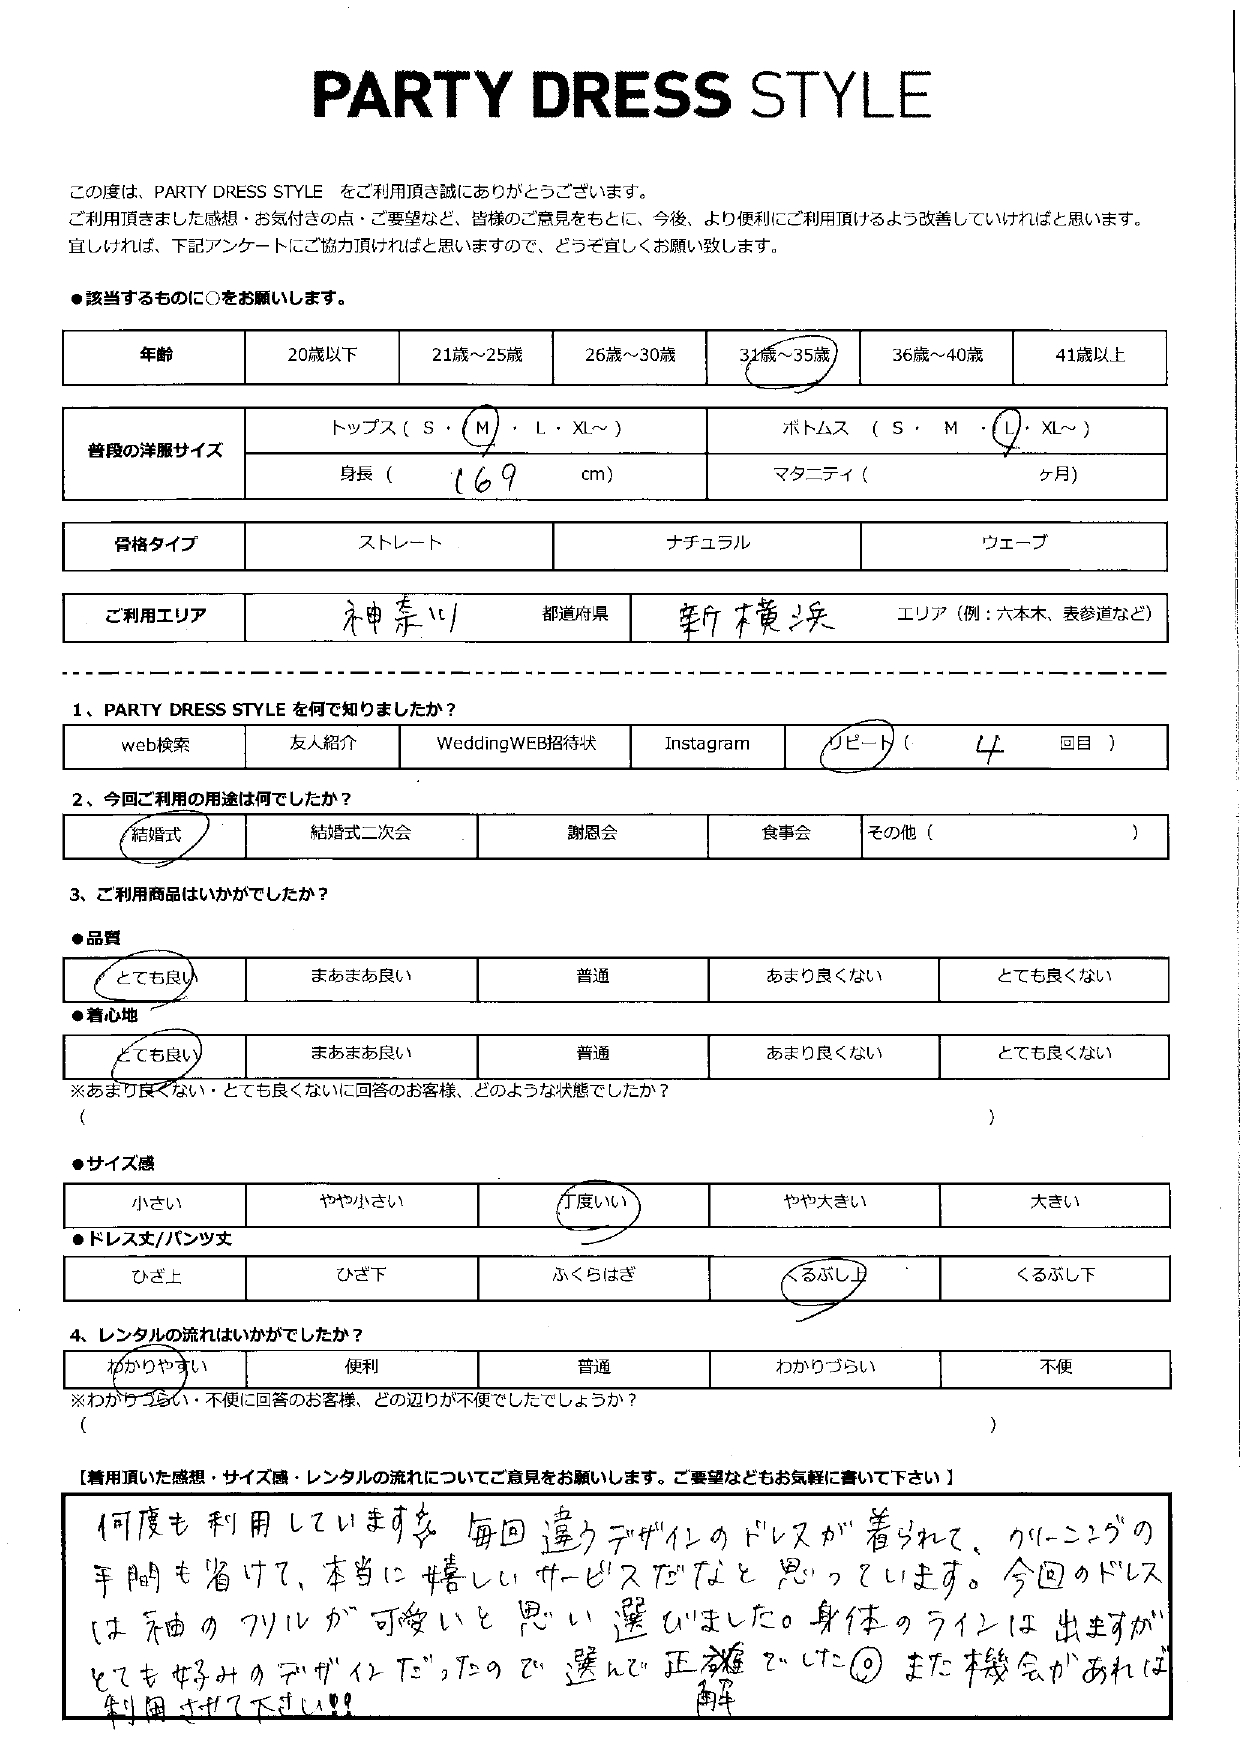 PARTY DRESS STYLE
この度は、PARTY DRESS STYLE　をご利用頂き誠にありがとうございます。
ご利用頂きました感想・お気付きの点・ご要望など、皆様のご意見をもとに、今後、より便利にご利用頂けるよう改善していければと思います。
宜しければ、下記アンケートにご協力頂ければと思いますので、どうぞ宜しくお願い致します。
●該当するものに○をお願いします。
年齢 20歳以下 21歳～25歳 26歳～30歳 31歳～35歳 36歳～40歳 41歳以上
普段の洋服サイズ トップス ( S ・ M ・ L ・ XL～ ) ボトムス ( S ・ M ・ L ・ XL～ )
身長 ( 169 cm) マタニティ ( ヶ月)
骨格タイプ ストレート ナチュラル ウェーブ
ご利用エリア 神奈川 都道府県 新横浜 エリア（例：六本木、表参道など）
1、PARTY DRESS STYLE を何で知りましたか？
web検索 友人紹介 WeddingWEB招待状 Instagram リピート ( 4 回目 )
2、今回ご利用の用途は何でしたか？
結婚式 結婚式二次会 謝恩会 食事会 その他 ( )
3、ご利用商品はいかがでしたか？
●品質
とても良い まあまあ良い 普通 あまり良くない とても良くない
●着心地
とても良い まあまあ良い 普通 あまり良くない とても良くない
※あまり良くない・とても良くないに回答のお客様、どのような状態でしたか？
( )
●サイズ感
小さい やや小さい 丁度いい やや大きい 大きい
●ドレス丈/パンツ丈
ひざ上 ひざ下 ふくらはぎ くるぶし上 くるぶし下
4、レンタルの流れはいかがでしたか？
わかりやすい 便利 普通 わかりづらい 不便
※わかりづらい・不便に回答のお客様、どの辺りが不便でしたでしょうか？
( )
【着用頂いた感想・サイズ感・レンタルの流れについてご意見をお願いします。ご要望などもお気軽に書いて下さい 】
何度も利用しています 毎回違うデザインのドレスが着られて、クリーニングの
手間も省けて、本当に嬉しいサービスだなと思っています。今回のドレス
は袖のフリルが可愛いと思い選びました。身体のラインは出ますが
とても好みのデザインだったので選んで正解でした◎ また機会があれば
利用させて下さい!!